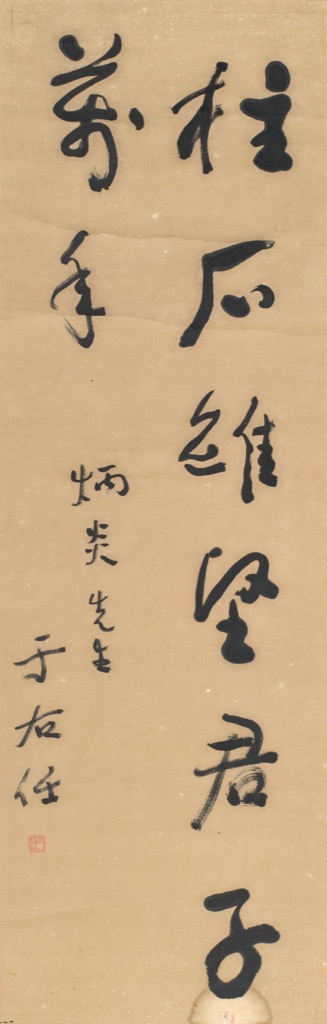 柱石維堅君子
萬年
炳炎先生
于右任